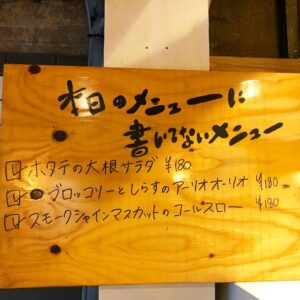 本日のメニューに
書いてないメニュー
ホタテの大根サラダ ¥180
ブロッコリーとしらすのアーリオオーリオ ¥180
スモークシャインマスカットのコールスロー ¥180